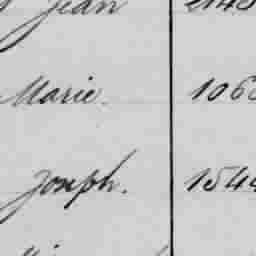 Jean
Marie. 106
Joseph. 154